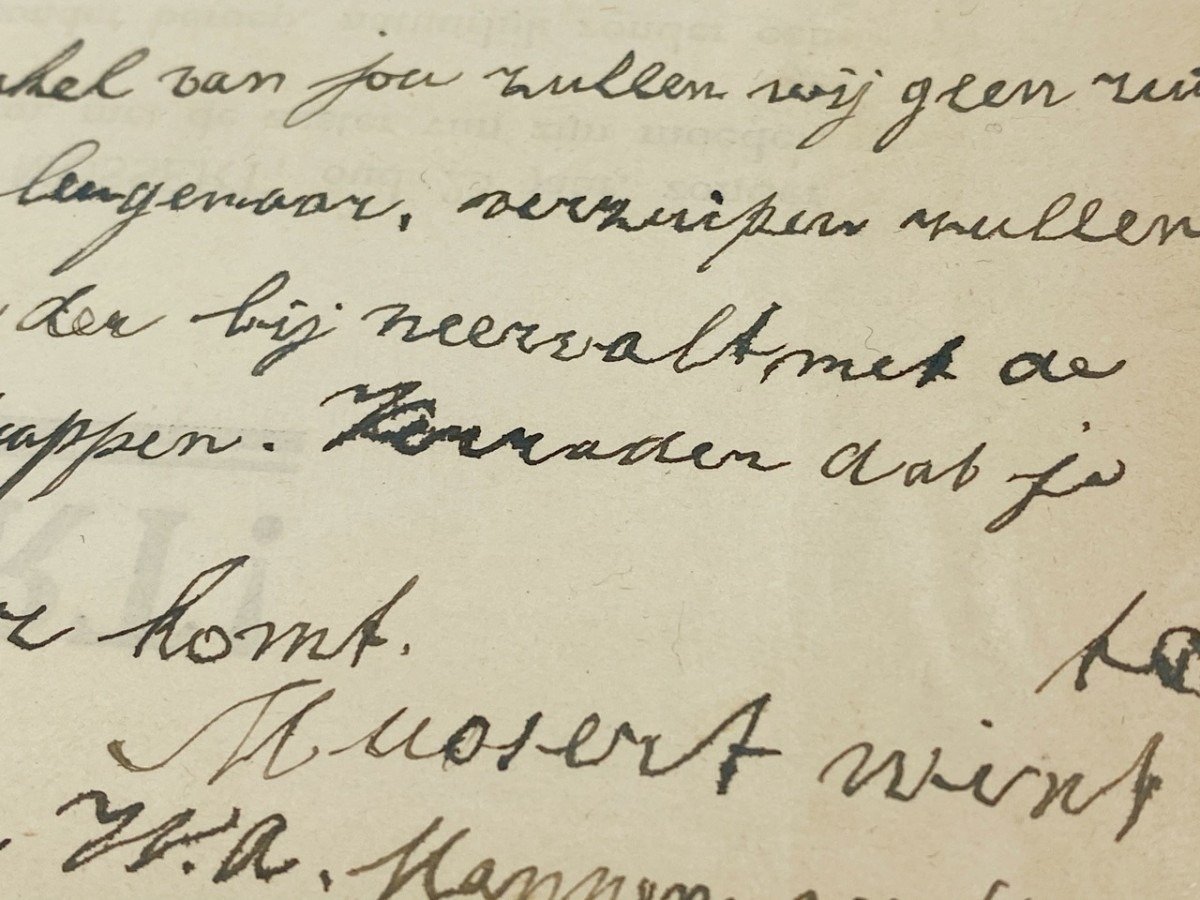 van jou zullen wij geen
leugenaar, verzuipen zullen
der bij neervalt, met de
appen. Verrader dat je
komt.
Muosert wint
W.A. Mannen